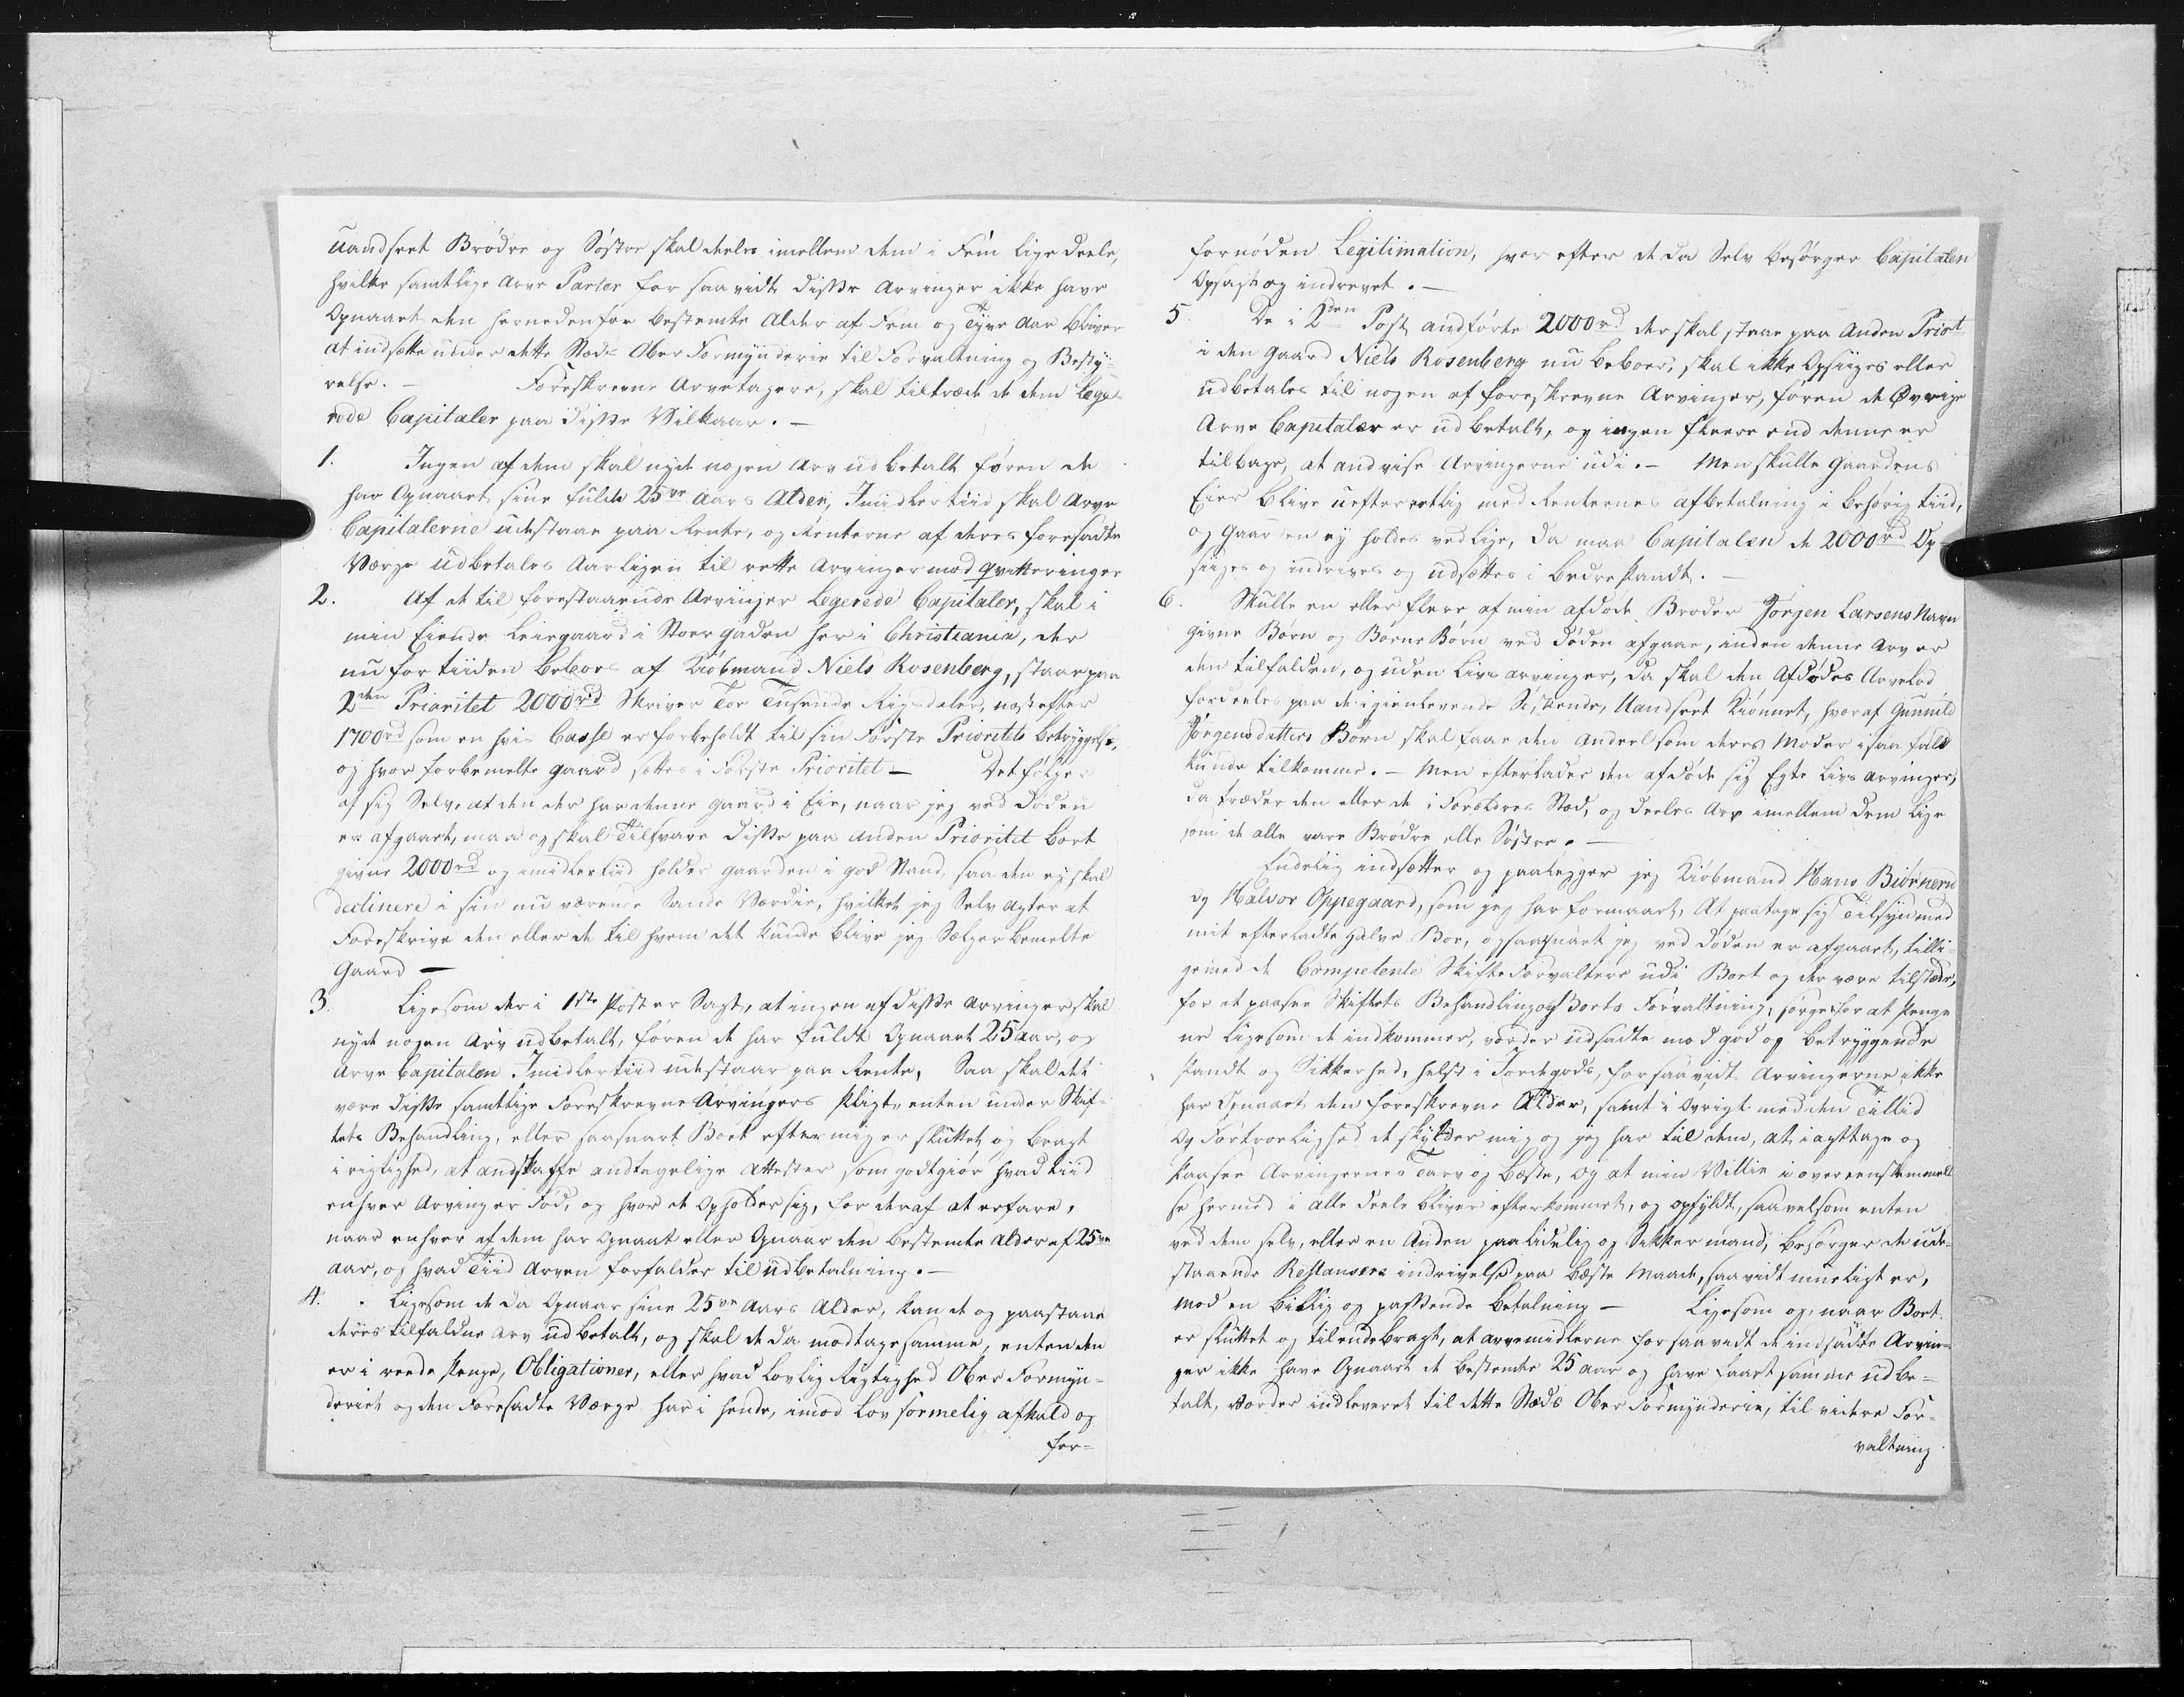 uandseet Brødre og Søstre skal deeles imellem dem i Fem lige Deele,
hvilke samtlige Arve Parter for saavidt disse Arvinger ikke have
Opnaaet den hernedenfor bestemte Alder af Fem og Tyve Aar bliver
at indsætte under dette Steds Ober Formynderie til Forvaltning og Besty-
relse. — Foreskrevne Arvetagere, skal tiltræde de dem Lege-
rede Capitaler paa disse Vilkaar. —
1. Ingen af dem skal nyde nogen Arv udbetalt føren de
har Opnaaet sine fulde 25ve Aars Alder, Imidlertiid skal Arve
Capitalerne udestaae paa Rente, og Renterne af deres foresadte
Værge udbetales Aarligen til rette Arvinger mod Qvitteringer
2. Af de til forestaaende Arvinger Legerede Capitaler, skal i
min Eiende Leiegaard i Stoer gaden her i Christiania, der
nu for tiiden beboes af Kiøbmand Niels Rosenberg, staae paa
2den Prioritet 2000rd Skriver Toe Tusende Rigsdaler, næst efter
1700rd som en hvis Casse er forbeholdt til sin Første Prioritets betryggelse,
og hvor forbemelte gaard sættes i Første Prioritet — Det følger
af sig Selv, at den der har denne gaard i Eie, naar jeg ved Døden
er afgaaet, maa og skal Tilsvare disse paa Anden Prioritet bort
givne 2000rd og imidlertiid holder gaarden i god Stand, saa den ey skal
declinere i sin nu værende Sande Værdie, hvilket jeg Selv agter at
Foreskrive den eller de til hvem det kunde blive jeg Sælger bemelte
Gaard —
3. Ligesom der i 1ste Post er Sagt, at ingen af disse Arvinger skal
nyde nogen Arv udbetalt, føren de har fuldt Opnaaet 25 Aar, og
Arve Capitalen Imidlertiid udestaar paa Rente, Saa skal det
være disse samtlige Foreskrevne Arvingers Pligt, enten under Skif-
tets Behandling, eller saasnart Boet efter mig er sluttet og bragt
i rigtighed, at andskaffe andtagelige Attester som godtgiør hvad tiid
enhver Arving er Fød, og hvor de Opholder sig, for deraf at erfare,
naar enhver af dem har Opnaaet eller Opnaar den bestemte Alder af 25ve
Aar, og hvad Tiid Arven forfalder til Udbetalning. —
4. Ligesom de da Opnaar sine 25ve Aars Alder, kan de og paastaae
deres tilfaldne Arv udbetalt, og skal de da modtage samme, enten den
er i reede Penge, Obligationer, eller hvad Lovlig Rigtighed Ober Formyn-
deriet og den Foresadte Værge har i hende, imod Lov formelig afkald og
for=
fornøden Legitimation, hvor efter de da Selv besørger Capitalen
Opsagt og indrevet. —
5 De i 2den Post andførte 2000rd der skal staae paa Anden Priot
i den Gaard Niels Rosenberg nu beboer, skal ikke Opsiiges eller
udbetales til nogen af foreskrevne Arvinger, føren de Øvrige
Arve Capitaler er udbetalt, og ingen fleere end denne er
tilbage, at andvise Arvingerne udi. — Men skulle Gaardens
Eier blive uefterretlig med Renternes afbetalning i behørig tiid,
og Gaarden ey holdes ved lige, da maa Capitalen de 2000rd Op-
siiges og indrives og udsættes i bedre Pandt. —
6. Skulle en eller flere af min afdøde Broder Jørgen Larsens Navn
givne Børn og Børne Børn ved Døden afgaae, inden denne Arv er
den tilfalden, og uden Livs arvinger, da skal den Afdødes Arvelod
fordeeles paa de igienlevende Sødskende, Uandseet Kiønnet, hvoraf Gunnild
Jørgensdatters Børn skal faae den Andeel som deres Moder i saa fald
kunde tilkomme. — Men efterlader den afdøde sig Egte Livs arvinger,
da træder den eller de i Forældres Sted, og deeles Arv imellem dem lige
som de alle vare Brødre elle Søstre. —
Endelig indsætter og paalegger jeg Kiøbmand Hans Biørneru
og Halvor Oppegaard, som jeg har formaaet, At paatage sig Tilsyn med
mit efterladte halve Boe, og saasnart jeg ved døden er afgaaet, tilli-
gemed de Competente Skifte Forvaltere udi Boet og der være tilstæde,
for at paasee Skiftets Behandling og Boets Forvaltning, sørge for at Penge
ne ligesom de indkommer, vorder udsadte mod god og betryggende
Pandt og Sikkerhed, helst i Jordegods, forsaavidt Arvingerne ikke
har Opnaaet den foreskrevne Alder, samt i Øvrigt med den Tillid
og Fortroelighed de skylder mig og jeg har til dem, at iagttage og
Paasee Arvingernes Tarv og Beste, og at min Villie i overeensstemmel
se hermed i alle deele bliver efterkommet, og opfyldt, saavelsom enten
ved dem selv, eller en Anden paalidelig og Sikker mand, besørger de ude-
staaende Restancers inddrivelse paa bæste Maade, saavidt mueligt er,
mod en billig og passende betalning — Ligesom og, naar Boet
er sluttet og tilendebragt, at arvemidlerne forsaavidt de indsadte Arvin-
ger ikke have Opnaaet de bestemte 25 Aar og have faaet samme udbe=
talt, vorder indleveret til dette Steds Ober Formynderie, til videre For-
valtning